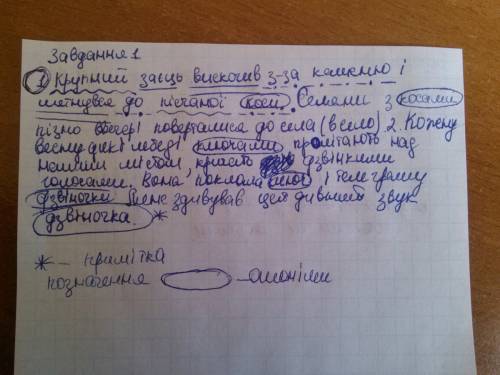 Завдання 1
1 Крупний заєць вискочив з-за каменю і
метнувся до піщаної коси. Селяни з косами
пізно ввечері поверталися до села (в село) 2. Кожену
весну дикі лебеді ключами пролітають над
нашим містом, дзвінкими
голосами. Вона поклала ключ і телеграму
дзвіночки Мене здивував цей дивний звук
дзвіночка. *
* – примітка
позначення – омоніми